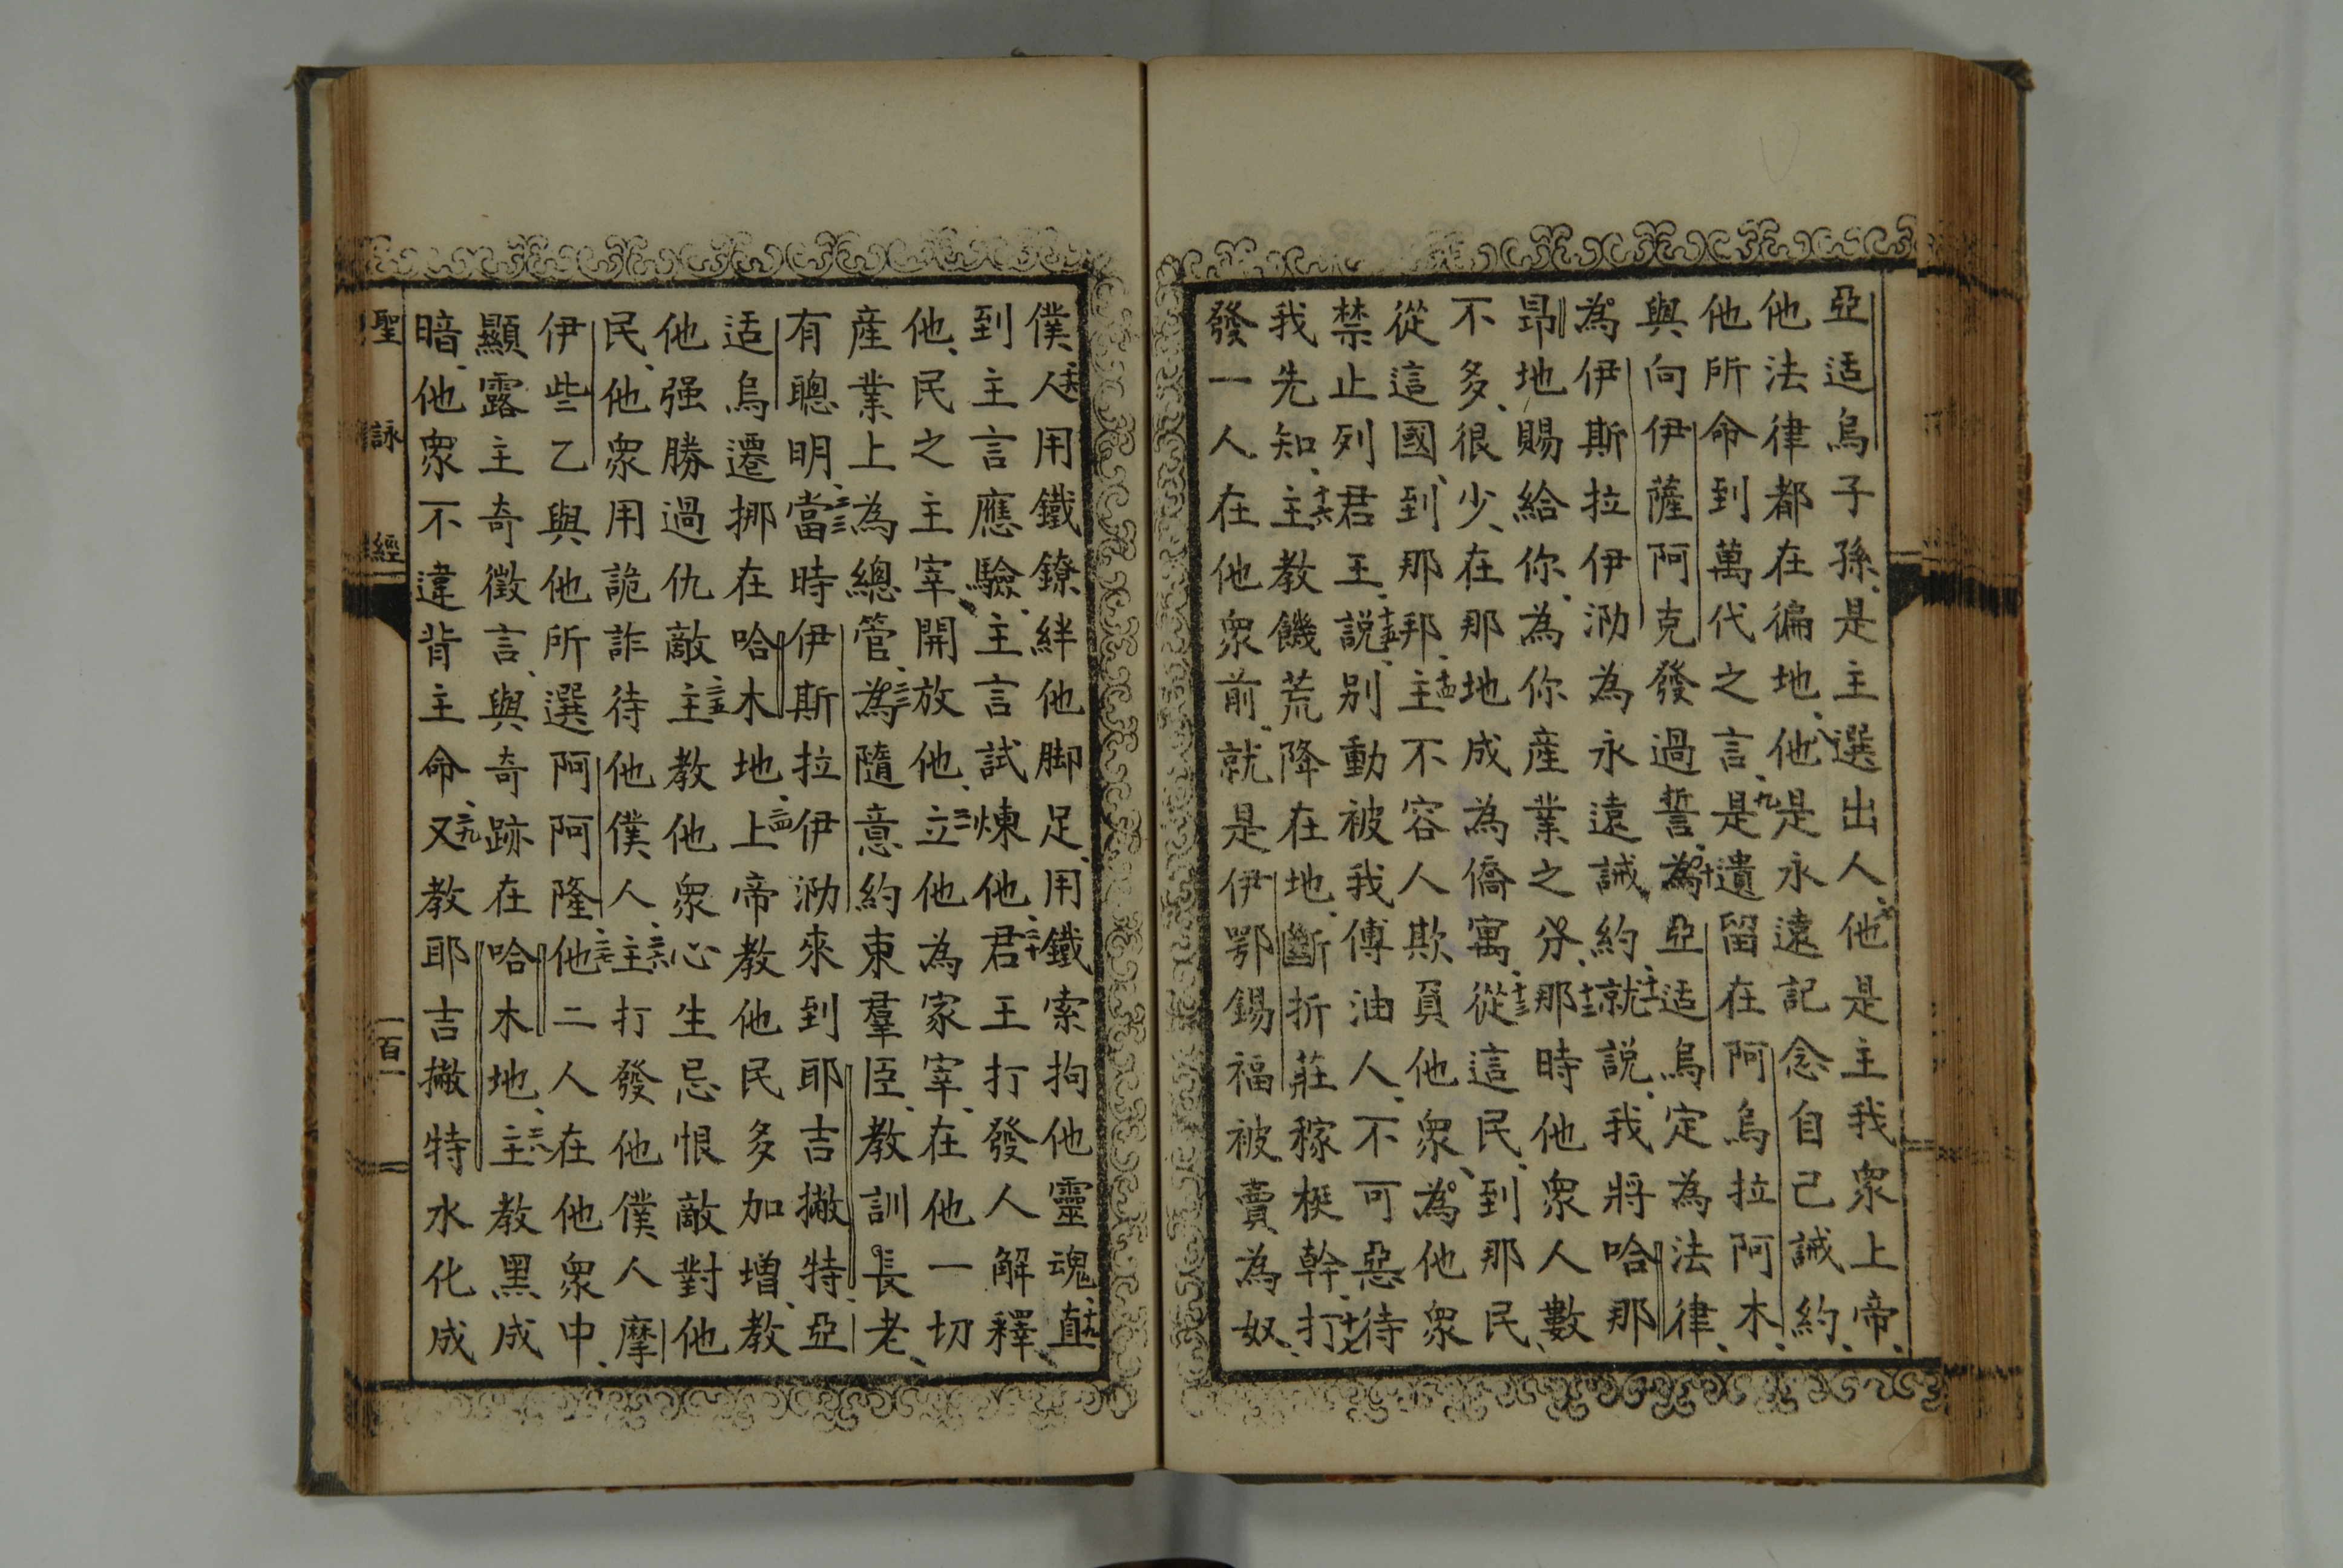 亞适烏子孫、是主選出人、七他是主我衆上帝、
他法律都在徧地、八他是永遠記念自己誡約、
他所命到萬代之言、九是遺留在阿烏拉阿木、
與向伊薩阿克發過誓、十為亞适烏定為法律、
為伊斯拉伊泐為永遠誡約、十一就說、我將哈那
昂地賜給你、為你產業之分、十二那時他衆人數
不多、很少、在那地成為僑寓、十三從這民、到那民、
從這國、到那邦、十四主不容人欺負他衆、為他衆
禁止列君王、十五說、別動被我傅油人、不可惡待
我先知、十六主教饑荒降在地、斷折莊稼梃幹、十七打
發一人在他衆前、就是伊鄂錫福被賣為奴、
僕、十八人用鐵鐐絆他脚足、用鐵索拘他靈魂、十九直
到主言應驗、主言試煉他、二十君王打發人解釋、
他、民之主宰開放他、二一立他為家宰、在他一切
產業上為總管、二二為隨意約束羣臣、教訓長老、
有聰明、二三當時伊斯拉伊泐來到耶吉撇特、亞
适烏遷挪在哈木地、二四上帝教他民多加增、教
他强勝過仇敵、二五主教他衆心生忌恨敵對他
民、他衆用詭詐待他僕人、二六主打發他僕人摩
伊些乙與他所選阿阿隆、二七他二人在他衆中、
顯露主奇徵言、與奇跡在哈木地、二八主教黑成
暗、他衆不違背主命、二九又教耶吉撇特水化成
聖詠經
一百一